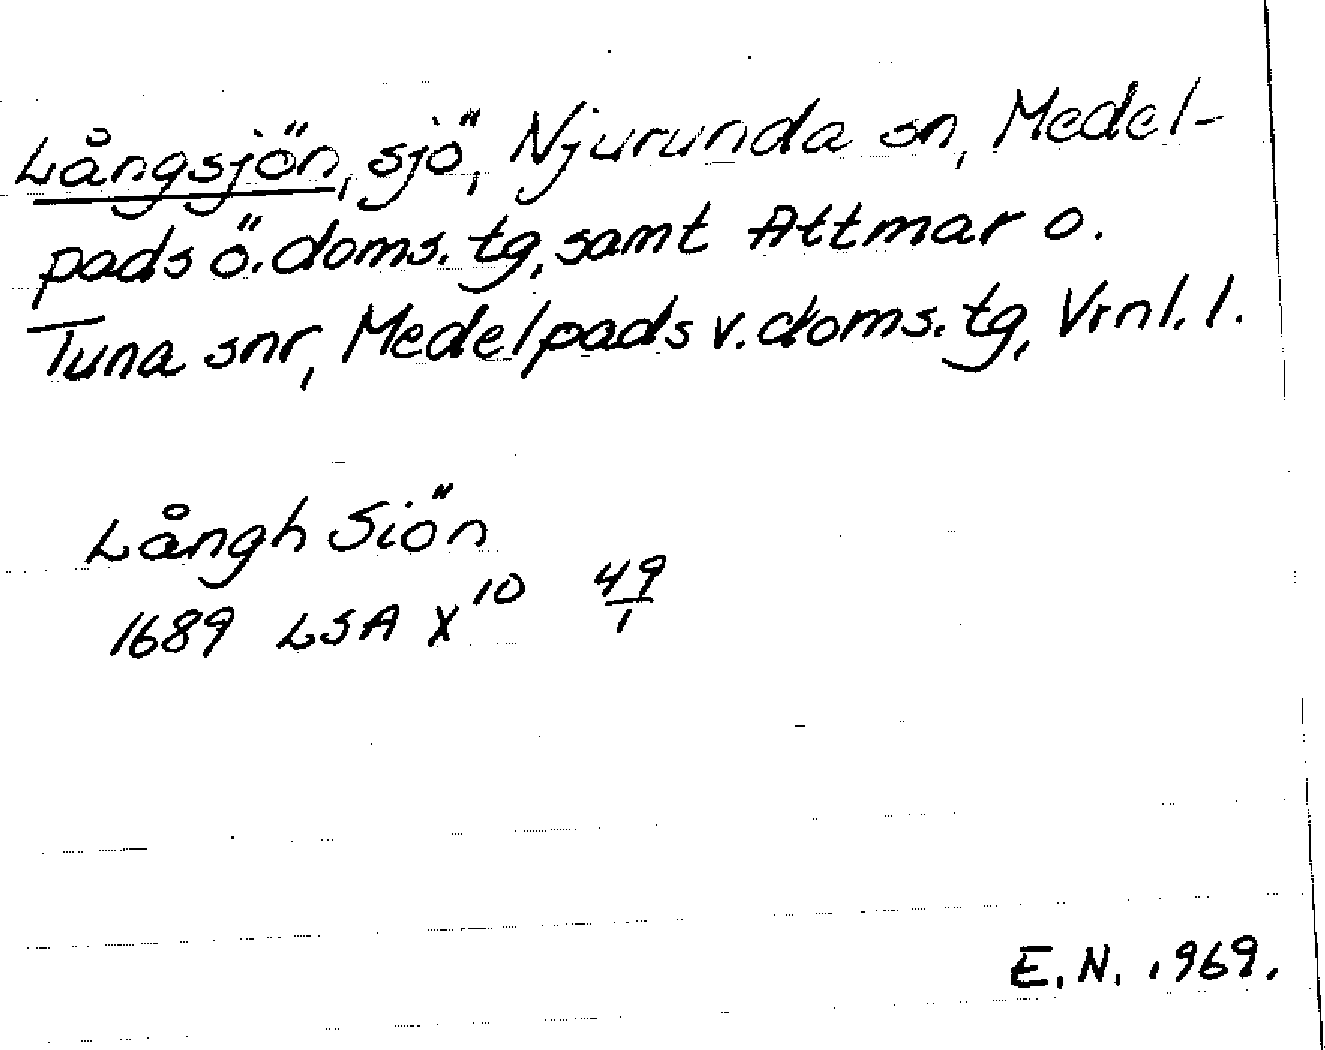 Långsjön, sjö, Njurunda sn, Medel-
pads ö. doms. tg, samt Attmar o.
Tuna snr, Medelpads v. doms. tg, Vrnl. l.
Långh Siön
1689 LSA X¹⁰ 49/1
E. N. 1969.